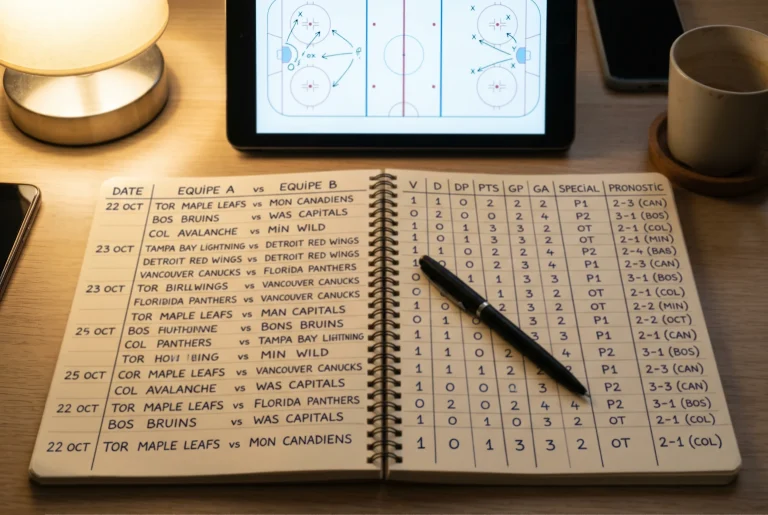 DATE EQUIPE A vs EQUIPE B V D DP PTS GP GA SPECIAL PRONOSTIC
22 OCT TOR MAPLE LEAFS vs MON CANADIENS 1 1 0 2 2 2 P1 2-3 (CAN)
BOS BRUINS vs WAS CAPITALS 0 2 0 0 2 4 P2 3-1 (BOS)
COL AVALANCHE vs MIN WILD 1 0 1 3 3 2 OT 2-1 (COL)
23 OCT TAMPA BAY LIGHTNING vs DETROIT RED WINGS 1 0 1 3 3 2 OT 2-1 (MIN)
DETROIT RED WINGS vs DETROIT RED WINGS 1 1 0 2 2 4 P2 2-4 (BAS)
VANCOUVER CANUCKS vs FLORIDA PANTHERS 0 0 2 3 4 P1 2-3 (CAN)
23 OCT TOR BIRLLWINGS vs VANCOUVER CANUCKS 0 1 1 3 3 P1 3-1 (BOS)
FLORIDIDA PANTHERS vs VANCOUVER CANUCKS 1 0 3 2 OT 2-1 (COL)
TOR MAPLE LEAFS vs MAN CAPITALS 1 0 1 3 2 OT 2-2 (MIN)
25 OCT BOS vs BONS BRUINS 0 1 0 3 2 P1 2-2 (OCT)
COL PANTHERS vs TAMPA BAY LIGHTNING 1 1 0 2 3 P1 2-1 (CAN)
TOR vs MIN WILD 1 1 0 2 4 P2 3-1 (BOS)
25 OCT COR MAPLE LEAFS vs VANCOUVER CANUCKS 1 1 1 2 3 P1 2-3 (CAN)
COL AVALANCHE vs WAS CAPITALS 1 0 0 3 P2 3-3 (CAN)
22 OCT TOR MAPLE LEAFS vs FLORIDA PANTHERS 0 2 0 2 4 4 P2 3-1 (BOS)
BOS BRUINS vs WAS CAPITALS 1 0 1 0 3 2 OT 2-1 (COL)
22 OCT TOR MAPLE LEAFS vs MON CANADIENS 1 0 1 3 3 2 OT 2-1 (COL)